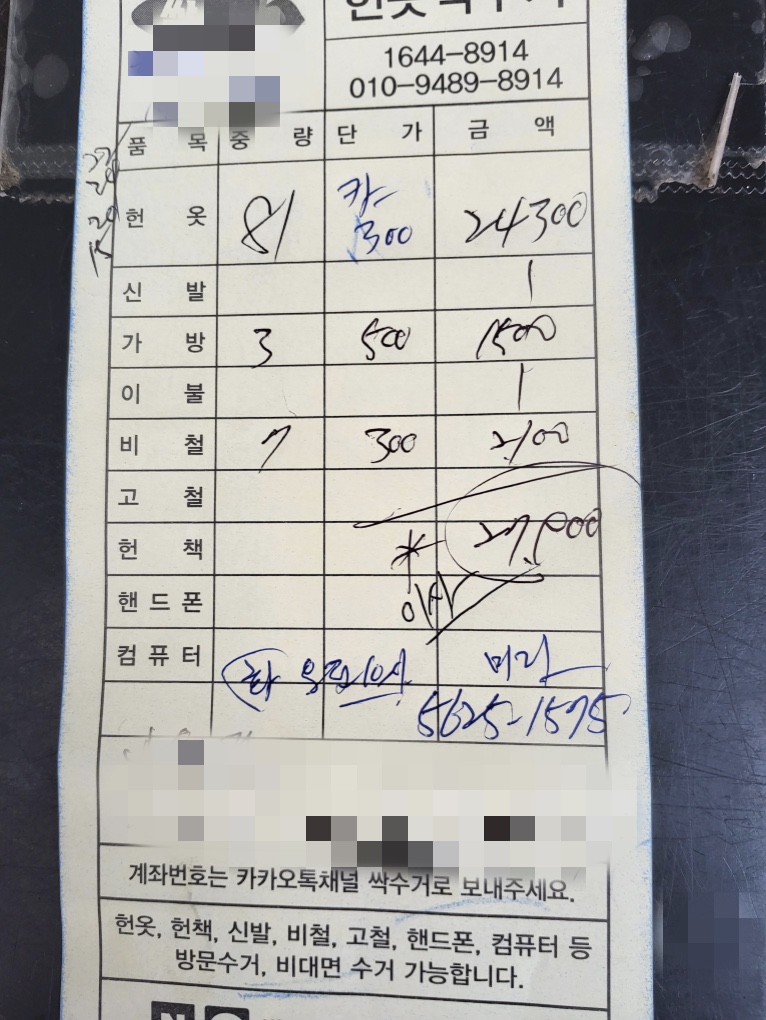 헌옷싹수거
1644-8914
010-9489-8914
품 목 중 량 단 가 금 액
헌 옷 81 카 300 24300
신 발 1
가 방 3 500 1500
이 불 1
비 철 7 300 2100
고 철
헌 책 27,000
핸드폰
컴퓨터 미라
5625-1575
계좌번호는 카카오톡채널 싹수거로 보내주세요.
헌옷, 헌책, 신발, 비철, 고철, 핸드폰, 컴퓨터 등
방문수거, 비대면 수거 가능합니다.